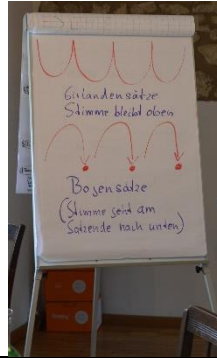 Girlandensätze
Stimme bleibt oben
Bogensätze
(Stimme geht am
Satzende nach unten)